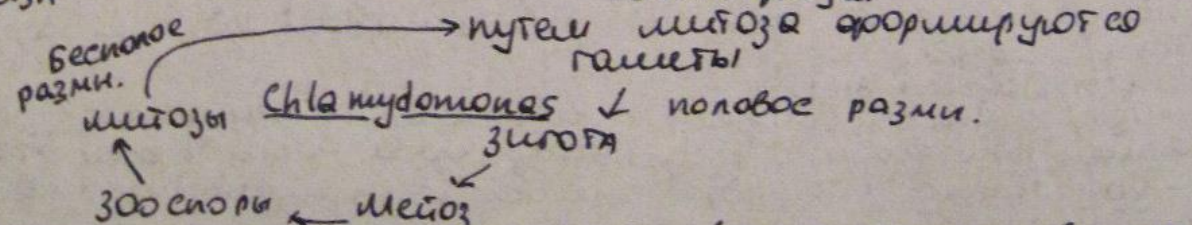 Бесполое
путем митоза формируются
гаметы
размн.
митозы Chlamydomonas половое размн.
зигота
зооспоры мейоз